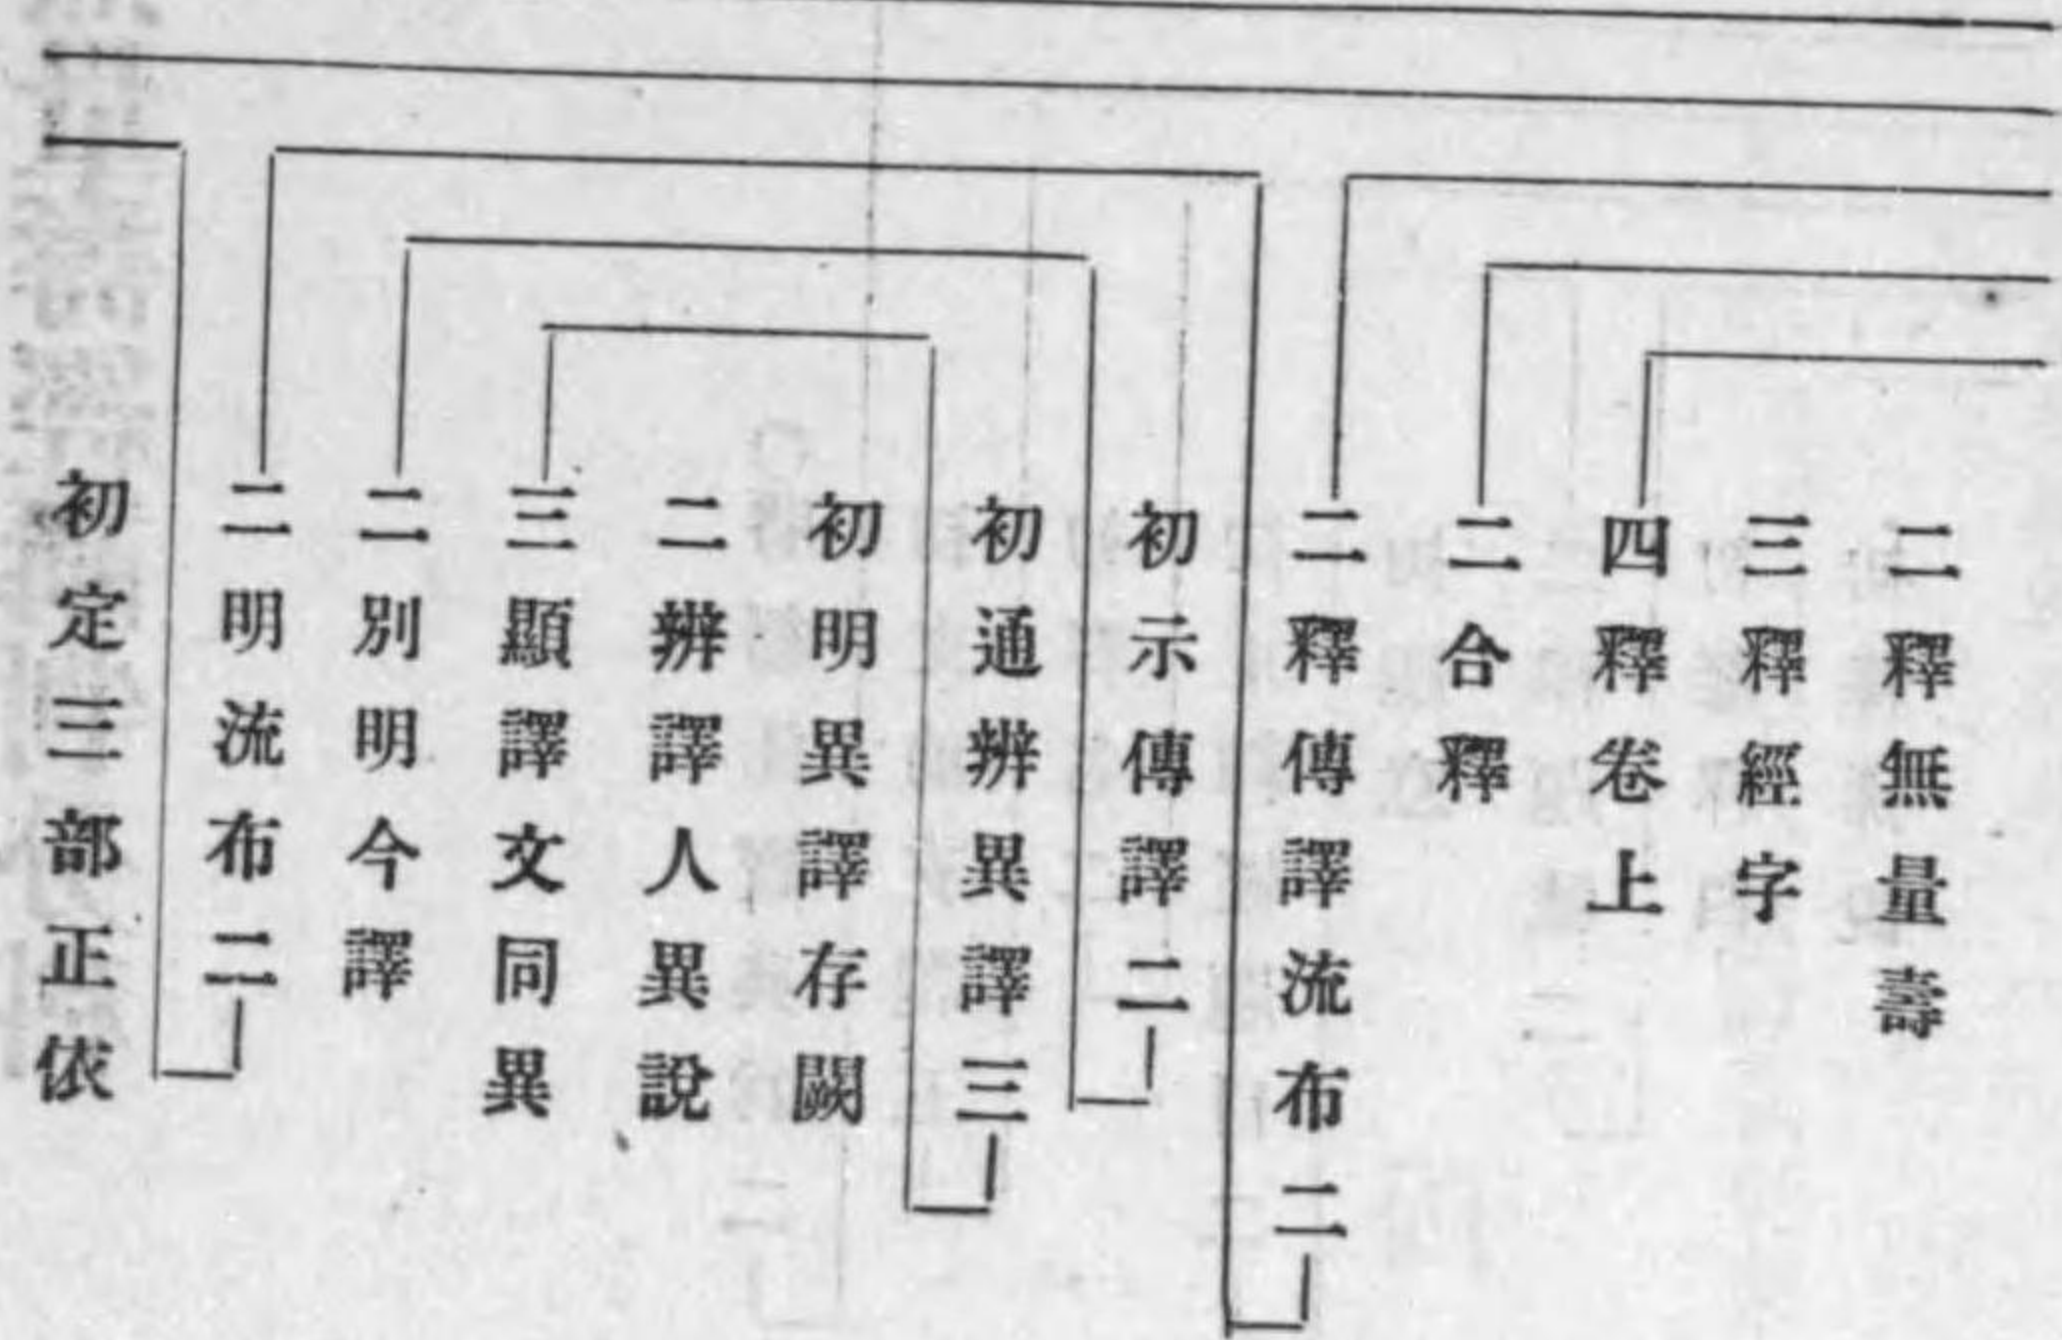 二釋無量壽
三釋經字
四釋卷上
二合釋
二釋傳譯流布二
初示傳譯二
初通辨異譯三
初明異譯存闕
二辨譯人異說
三顯譯文同異
二別明今譯
二明流布二
初定三部正依